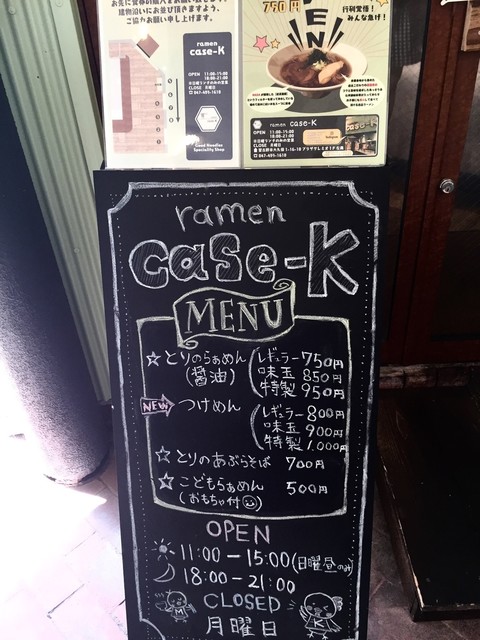 お先に食券の購入をお願い致します。
建物沿いにお並び頂きますよう。
ご協力お願い申し上げます。
ramen
case-K
OPEN 11:00-15:00
18:00-21:00
CLOSE 月曜日
Good Noodles
Speciality Shop
750円
行列覚悟!
みんな急げ!
ramen case-K
OPEN 11:00-15:00
18:00-21:00
CLOSE 月曜日
ramen
case-K
MENU
☆とりのらぁめん (醤油)
レギュラー 750円
味玉 850円
特製 950円
NEW つけめん
レギュラー 800円
味玉 900円
特製 1,000円
☆とりのあぶらそば 700円
☆こどもらぁめん 500円
(おもちゃ付)
OPEN
11:00-15:00(日曜昼のみ)
18:00-21:00
CLOSED
月曜日
M
K